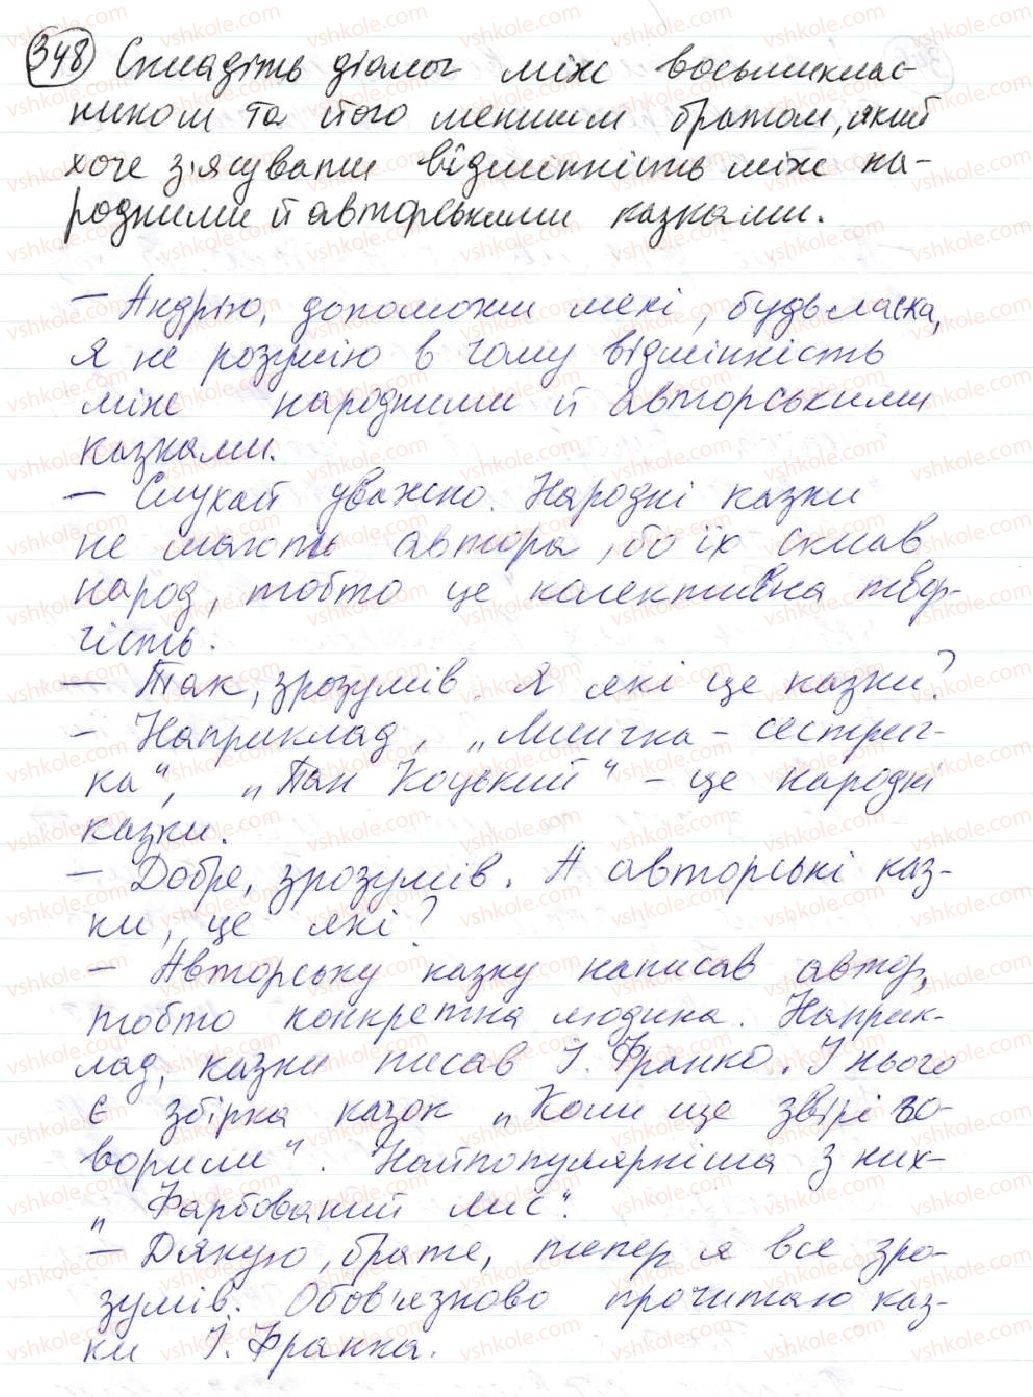 348 Складіть діалог між восьмиклас-
ником та його меншим братом, який
хоче з'ясувати відмінність між на-
родними й авторськими казками.
– Андрію, допоможи мені, будь ласка,
я не розумію в чому відмінність
між народними й авторськими
казками.
– Слухай уважно. Народні казки
не мають автора, бо їх склав
народ, тобто це колективна твор-
чість.
– Так, зрозумів. А які це казки?
– Наприклад, „Лисичка-сестрич-
ка“, „Пан Коцький“ – це народні
казки.
– Добре, зрозумів. А авторські каз-
ки, це які?
– Авторську казку написав автор,
тобто конкретна людина. Наприк-
лад, казки писав І. Франко. У нього
є збірка казок „Коли ще звірі го-
ворили“. Найпопулярніша з них–
„Фарбований лис“.
– Дякую, брате, тепер я все зро-
зумів. Обов'язково прочитаю каз-
ки І. Франка.